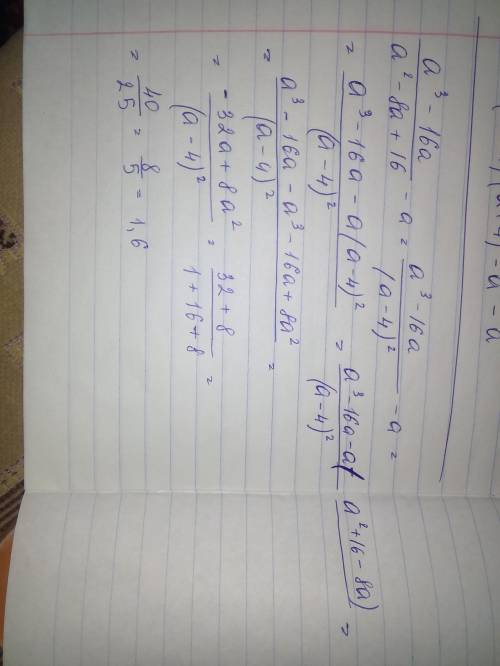 (a-4) - a - a
a³ - 16a / a² - 8a + 16 - a = a³ - 16a / (a - 4)² - a =
= a³ - 16a - a(a - 4)² / (a - 4)² = a³ - 16a - a(a² + 16 - 8a) / (a - 4)² =
= a³ - 16a - a³ - 16a + 8a² / (a - 4)² =
= -32a + 8a² / (a - 4)² = 32 + 8 / 1 + 16 + 8 =
= 40 / 25 = 8 / 5 = 1,6